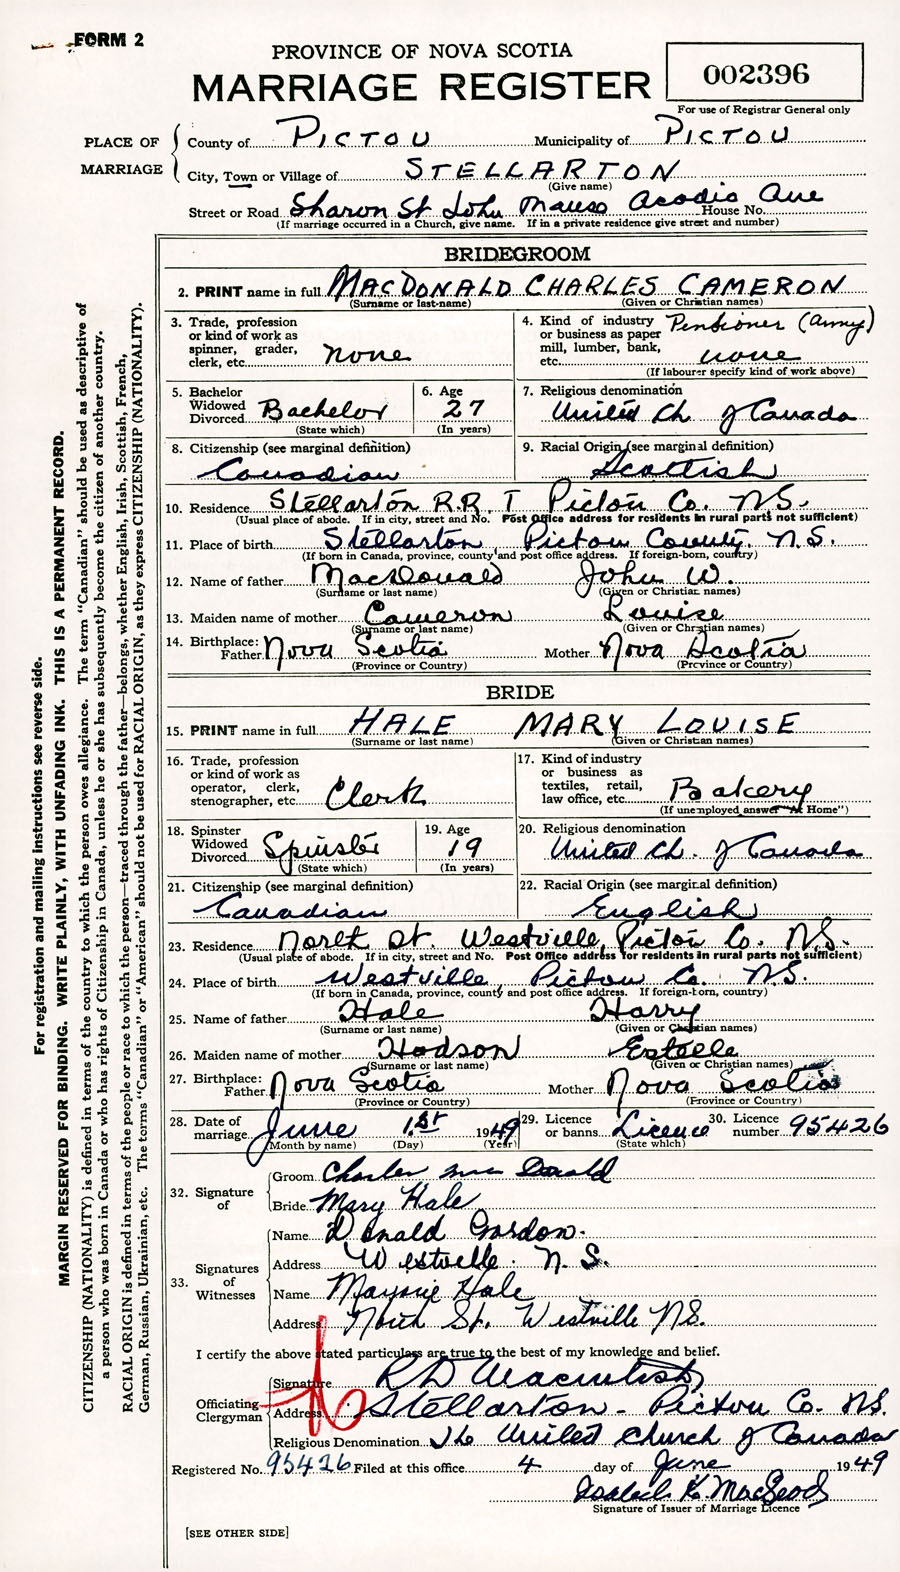 FORM 2
PROVINCE OF NOVA SCOTIA
MARRIAGE REGISTER
002396
For use of Registrar General only
PLACE OF MARRIAGE
County of PICTOU Municipality of PICTOU
City, Town or Village of STELLARTON
(Give name)
Street or Road Sharon St John Manse Acadia Ave House No.
(If marriage occurred in a Church, give name. If in a private residence give street and number)
BRIDEGROOM
2. PRINT name in full MACDONALD CHARLES CAMERON
(Surname or last-name) (Given or Christian names)
3. Trade, profession or kind of work as spinner, grader, clerk, etc. none
4. Kind of industry or business as paper mill, lumber, bank, etc. Pensioner (army) none
(If labourer specify kind of work above)
5. Bachelor Widowed Divorced Bachelor
(State which)
6. Age 27
(In years)
7. Religious denomination
United Ch of Canada
8. Citizenship (see marginal definition)
Canadian
9. Racial Origin (see marginal definition)
Scottish
10. Residence Stellarton R.R. 1 Pictou Co. N.S.
(Usual place of abode. If in city, street and No. Post Office address for residents in rural parts not sufficient)
11. Place of birth Stellarton Pictou County. N.S.
(If born in Canada, province, county and post office address. If foreign-born, country)
12. Name of father MacDonald John W.
(Surname or last name) (Given or Christian names)
13. Maiden name of mother Cameron Louise
(Surname or last name) (Given or Christian names)
14. Birthplace: Father Nova Scotia Mother Nova Scotia
(Province or Country) (Province or Country)
BRIDE
15. PRINT name in full HALE MARY LOUISE
(Surname or last name) (Given or Christian names)
16. Trade, profession or kind of work as operator, clerk, stenographer, etc. Clerk
17. Kind of industry or business as textiles, retail, law office, etc. Bakery
(If unemployed answer "At Home")
18. Spinster Widowed Divorced Spinster
(State which)
19. Age 19
(In years)
20. Religious denomination
United Ch. of Canada
21. Citizenship (see marginal definition)
Canadian
22. Racial Origin (see marginal definition)
English
23. Residence North St. Westville, Pictou Co. N.S.
(Usual place of abode. If in city, street and No. Post Office address for residents in rural parts not sufficient)
24. Place of birth Westville, Pictou Co. N.S.
(If born in Canada, province, county and post office address. If foreign-born, country)
25. Name of father Hale Harry
(Surname or last name) (Given or Christian names)
26. Maiden name of mother Hodson Estelle
(Surname or last name) (Given or Christian names)
27. Birthplace: Father Nova Scotia Mother Nova Scotia
(Province or Country) (Province or Country)
28. Date of marriage June 1st 1949
(Month by name) (Day) (Year)
29. Licence or banns Licence
(State which)
30. Licence number 95426
32. Signature of
Groom Charles MacDonald
Bride Mary Hale
33. Signatures of Witnesses
Name Donald Gordon.
Address Westville. N.S.
Name Marjorie Hale
Address North St. Westville N.S.
I certify the above stated particulars are true to the best of my knowledge and belief.
Officiating Clergyman
Signature R D Macintosh
Address Stellarton - Pictou Co. N.S.
Religious Denomination The United Church of Canada
Registered No. 95426 Filed at this office 4 day of June 1949
Isabel K. MacLeod
Signature of Issuer of Marriage Licence
[SEE OTHER SIDE]
For registration and mailing instructions see reverse side.
MARGIN RESERVED FOR BINDING. WRITE PLAINLY, WITH UNFADING INK. THIS IS A PERMANENT RECORD.
CITIZENSHIP (NATIONALITY) is defined in terms of the country to which the person owes allegiance. The term "Canadian" should be used as descriptive of
a person who was born in Canada or who has rights of Citizenship in Canada, unless he or she has subsequently become the citizen of another country.
RACIAL ORIGIN is defined in terms of the people or race to which the person—traced through the father—belongs, whether English, Irish, Scottish, French,
German, Russian, Ukrainian, etc. The terms "Canadian" or "American" should not be used for RACIAL ORIGIN, as they express CITIZENSHIP (NATIONALITY).